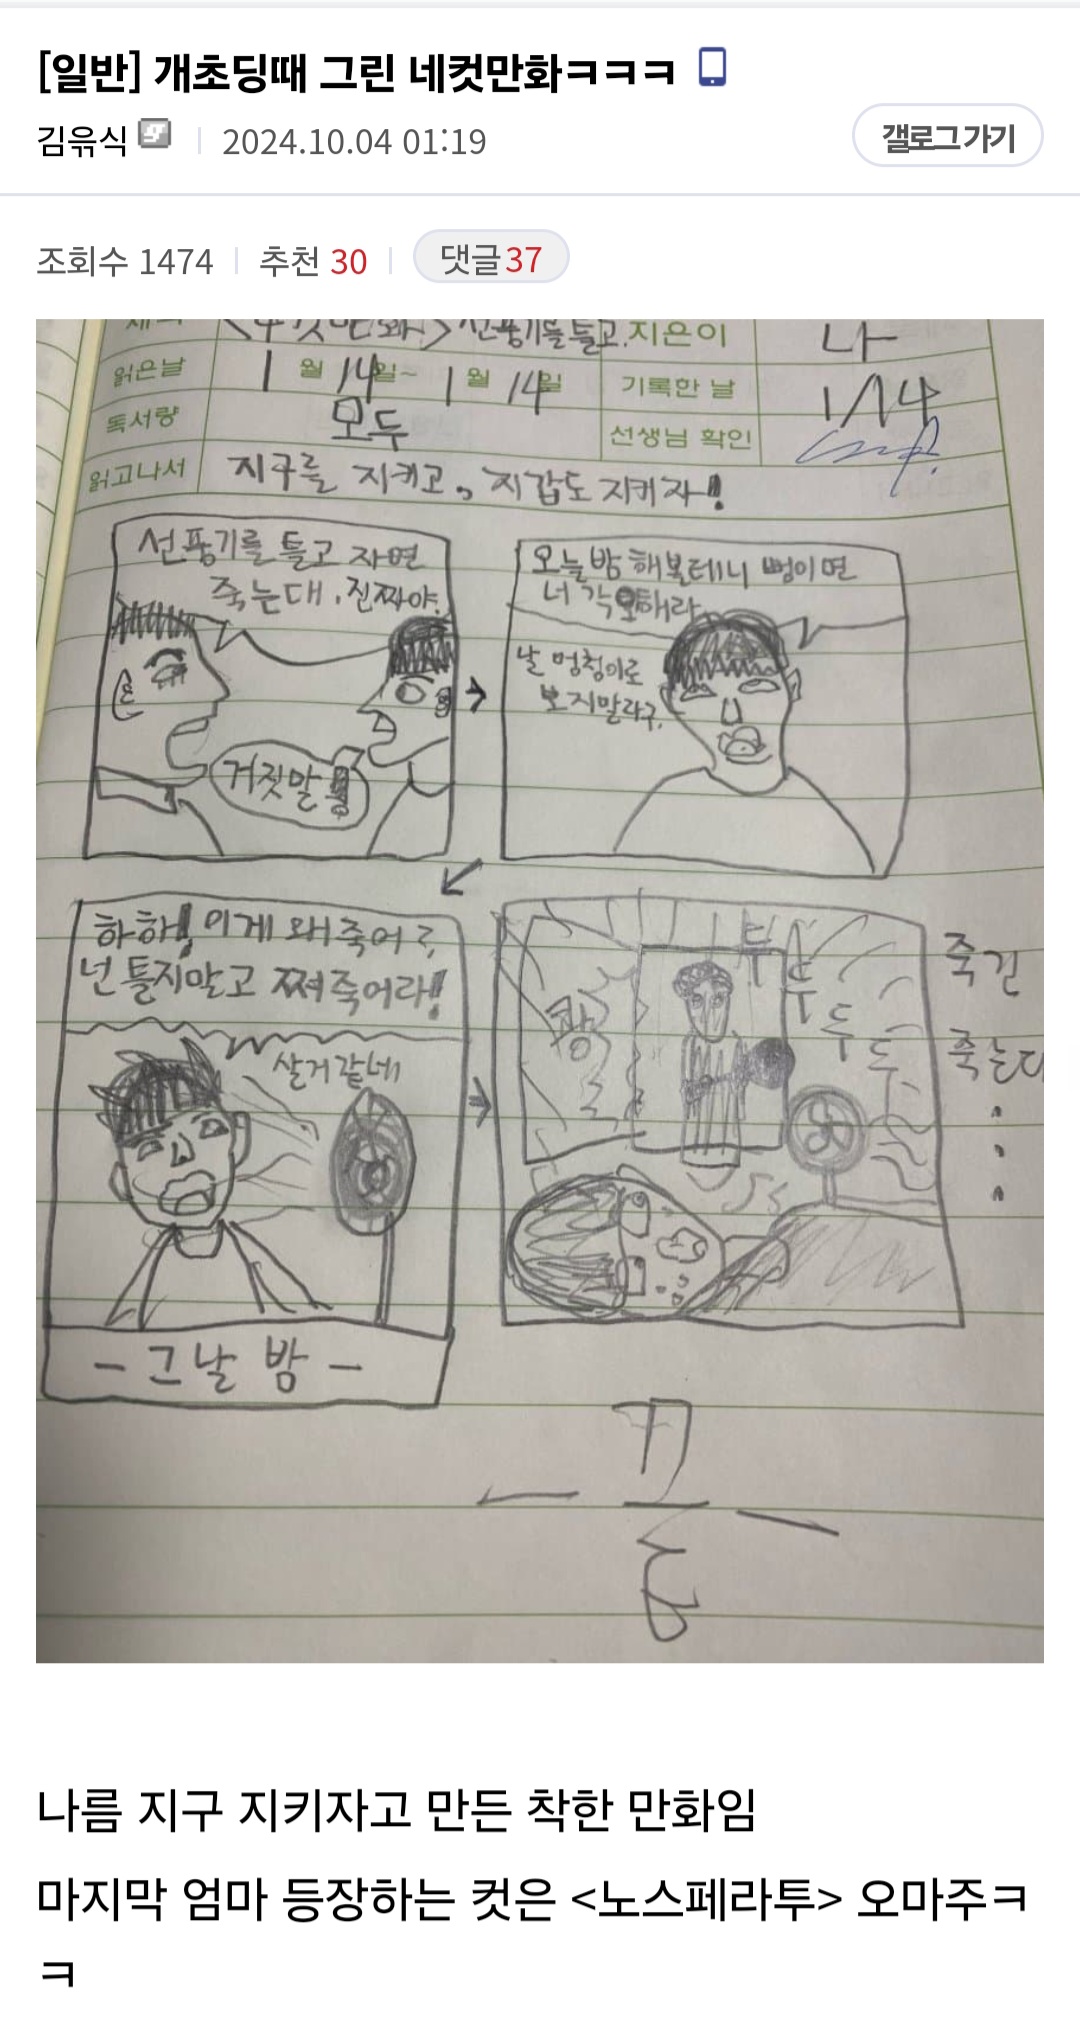 [일반] 개초딩때 그린 네컷만화ㅋㅋㅋ
김윾식
2024.10.04 01:19
갤로그 가기
조회수 1474
추천 30
댓글 37
선풍기를 틀고. 지은이 나
읽은날 1월 14일~ 1월 14일 기록한 날 1/14
독서량 모두 선생님 확인
읽고나서 지구를 지키고, 지갑도 지키자!
선풍기를 틀고 자면
죽는대, 진짜야.
거짓말
오늘밤 해볼테니 뻥이면
너 각오해라
날 멍청이로
보지말라구.
하하! 이게 왜 죽어?,
넌 틀지말고 쪄죽어라!
살거같네
- 그날 밤 -
쾅
두
두
두
두
죽긴
죽는다
- 끝 -
나름 지구 지키자고 만든 착한 만화임
마지막 엄마 등장하는 컷은 <노스페라투> 오마주ㅋ
ㅋ